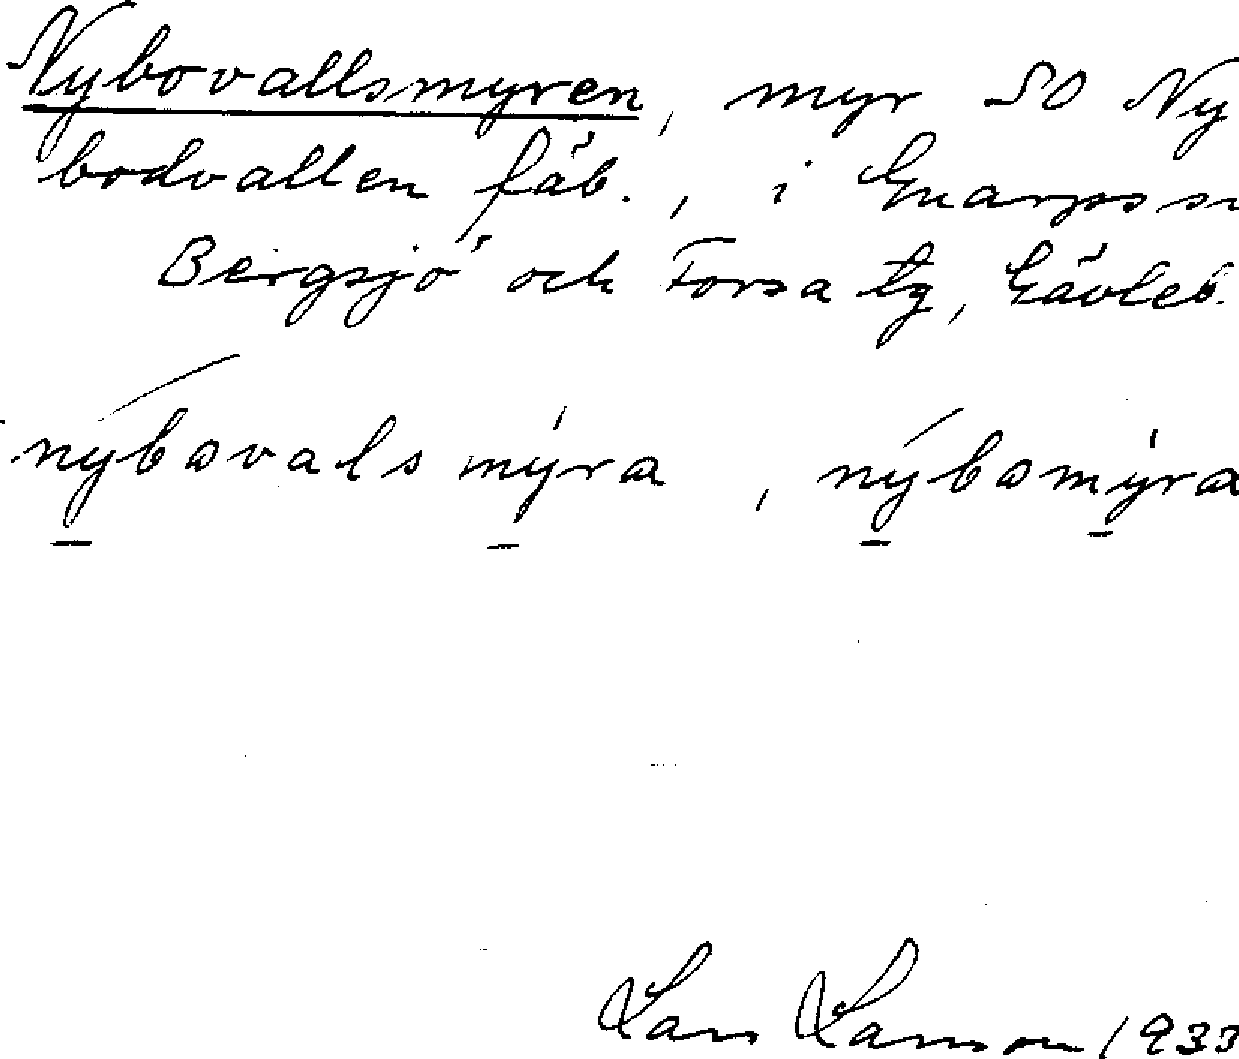 Nybovallsmyren, myr SO Ny
bodvallen fäb., i Gnarps sn
Bergsjö och Forsa tg, Gävleb.
nýbovalsmyra, nýbomyra
Lars Larsson 1933